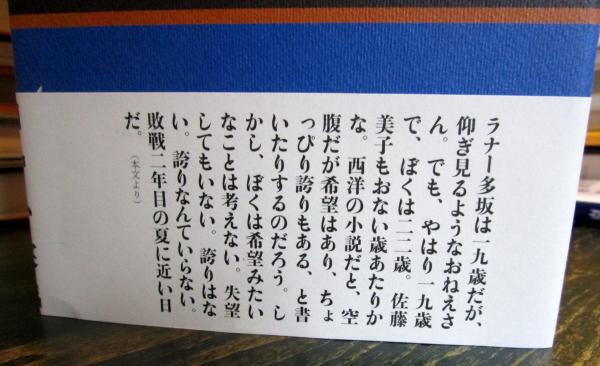 ラナー多坂は一九歳だが、
仰ぎ見るようなおねえさ
ん。でも、やはり一九歳
で、ぼくは二二歳。佐藤
美子もおない歳あたりか
な。西洋の小説だと、空
腹だが希望はあり、ちょ
っぴり誇りもある、と書
いたりするのだろう。し
かし、ぼくは希望みたい
なことは考えない。失望
してもいない。誇りはな
い。誇りなんていらない。
敗戦二年目の夏に近い日
だ。
（本文より）